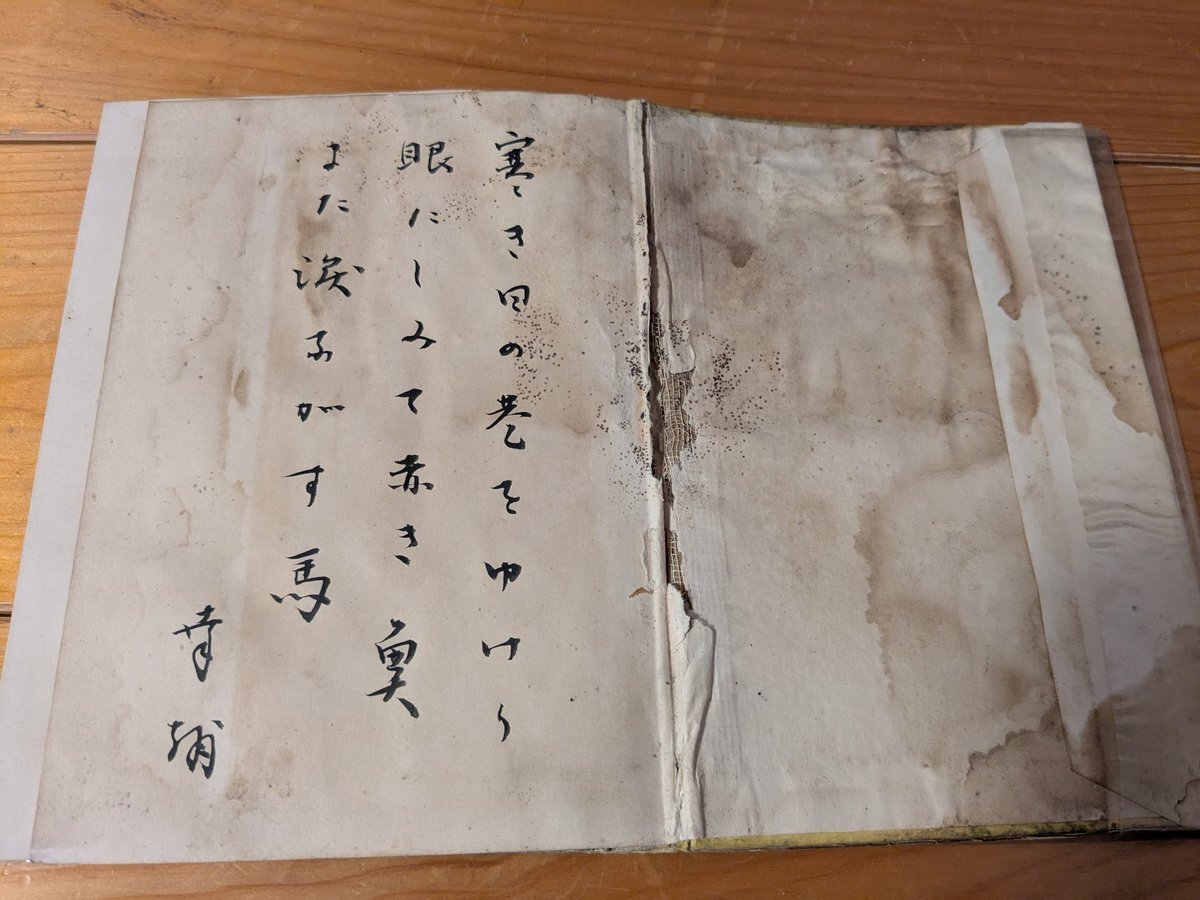 寒き日の巷をゆけり
眼にしみて赤き魚
また涙ながす馬